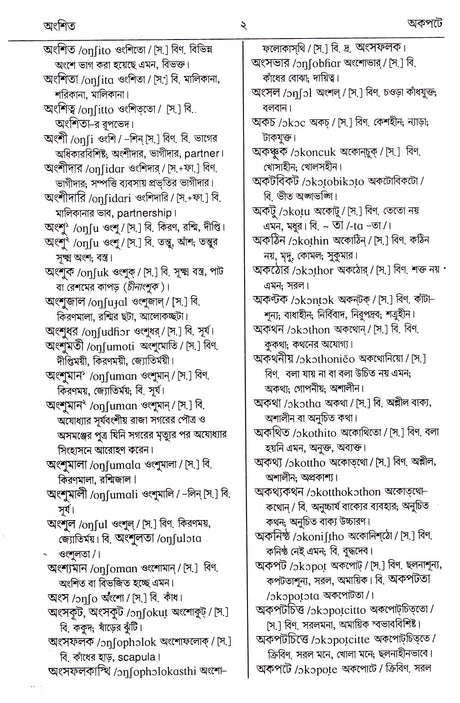 অংশিত ২ অকপটে
অংশিত /ɔŋʃito ওংশিতো / [স.] বিণ. বিভিন্ন
অংশে ভাগ করা হয়েছে এমন, বিভক্ত।
অংশিতা /ɔŋʃita ওংশিতা / [স.] বি. মালিকানা,
শরিকানা, মালিকানা।
অংশিত্ব /ɔŋʃitto ওংশিত্‌তো / [স.] বি..
অংশিতা-র রূপভেদ।
অংশী /ɔŋʃi ওংশি / –শিন্ [স.] বিণ. বি. ভাগের
অধিকারবিশিষ্ট; অংশীদার, ভাগীদার, partner।
অংশীদার /ɔŋʃidar ওংশিদার্ / [স.+ফা.] বিণ.
ভাগীদার; সম্পত্তি ব্যবসায় প্রভৃতির ভাগীদার।
অংশীদারি /ɔŋʃidari ওংশিদারি / [স.+ফা.] বি.
মালিকানার ভাব, partnership।
অংশু¹ /ɔŋʃu ওংশু / [স.] বি. কিরণ, রশ্মি, দীপ্তি।
অংশু² /ɔŋʃu ওংশু / [স.] বি. তন্তু, আঁশ; তন্তুর
সূক্ষ্ম অংশ; বস্ত্র।
অংশুক /ɔŋʃuk ওংশুক্ / [স.] বি. সূক্ষ্ম বস্ত্র, পাট
বা রেশমের কাপড় (চীনাংশুক)।
অংশুজাল /ɔŋʃuɟal ওংশুজাল্ / [স.] বি.
কিরণমালা, রশ্মির ছটা, আলোকচ্ছটা।
অংশুধর /ɔŋʃudɦor ওংশুধর্ / [স.] বি. সূর্য।
অংশুমতী /ɔŋʃumoti ওংশুমোতি / [স.] বিণ.
দীপ্তিময়ী, কিরণময়ী, জ্যোতির্ময়ী।
অংশুমান¹ /ɔŋʃuman ওংশুমান্ / [স.] বিণ.
কিরণময়, জ্যোতির্ময়; বি. সূর্য।
অংশুমান² /ɔŋʃuman ওংশুমান্ / [স.] বি.
অযোধ্যার সূর্যবংশীয় রাজা সগরের পৌত্র ও
অসমঞ্জের পুত্র যিনি সগরের মৃত্যুর পর অযোধ্যার
সিংহাসনে আরোহণ করেন।
অংশুমালা /ɔŋʃumala ওংশুমালা / [স.] বি.
কিরণমালা, রশ্মিজাল।
অংশুমালী /ɔŋʃumali ওংশুমালি / –লিন্ [স.] বি.
সূর্য।
অংশুল /ɔŋʃul ওংশুল্ / [স.] বিণ. কিরণময়,
জ্যোতির্ময়। বি. অংশুলতা /ɔŋʃulɔta
ওংশুলতা /।
অংশ্যমান /ɔŋʃoman ওংশোমান্ / [স.] বিণ.
অংশিত বা বিভজিত হচ্ছে এমন।
অংস /ɔŋʃo অংশো / [স.] বি. কাঁধ।
অংসকূট, অংসকুট /ɔŋʃokuṭ অংশোকুট্ / [স.]
বি. ককুদ; ষাঁড়ের ঝুঁটি।
অংসফলক /ɔŋʃopholɔk অংশোফলোক্ / [স.]
বি. কাঁধের হাড়, scapula।
অংসফলকাস্থি /ɔŋʃopholɔkasthi অংশো–
ফলোকাস্‌থি / [স.] বি. দ্র. অংসফলক।
অংসভার /ɔŋʃobɦar অংশোভার্ / [স.] বি.
কাঁধের বোঝা; দায়িত্ব।
অংসল /ɔŋʃɔl অংশল্ / [স.] বিণ. চওড়া কাঁধযুক্ত;
বলবান।
অকচ /ɔkɔc অকচ্ / [স.] বিণ. কেশহীন; ন্যাড়া;
টাকযুক্ত।
অকঞ্চুক /ɔkoncuk অকোন্‌চুক্ / [স.] বিণ.
খোসাহীন; খোলসহীন।
অকটবিকট /ɔkɔṭobikɔṭo অকটোবিকটো /
বি. ভীত অঙ্গভঙ্গি।
অকটু /ɔkoṭu অকোটু / [স.] বিণ. তেতো নয়
এমন, মধুর। বি. ~ তা /-ta –তা /।
অকঠিন /ɔkoṭhin অকোঠিন্ / [স.] বিণ. কঠিন
নয়, মৃদু, কোমল; সুকুমার।
অকঠোর /ɔkɔṭhor অকঠোর্ / [স.] বিণ. শক্ত নয়
এমন; সরল।
অকণ্টক /ɔkɔnṭɔk অকন্‌টক্ / [স.] বিণ. কাঁটা–
শূন্য; বাধাহীন; নির্বিবাদ, নিরুপদ্রব; শত্রুহীন।
অকথন /ɔkɔthon অকথোন্ / [স.] বি.
কুকথা; কথনের অযোগ্য।
অকথনীয় /ɔkɔthoniĕo অকথোনিয়ো / [স.]
বিণ. বলা যায় না বা বলা উচিত নয় এমন;
অকথ্য; গোপনীয়; অশালীন।
অকথা /ɔkɔtha অকথা / [স.] বি. অশ্লীল বাক্য,
অশালীন বা অনুচিত কথা।
অকথিত /ɔkothito অকোথিতো / [স.] বিণ. বলা
হয়নি এমন, অনুক্ত, অব্যক্ত।
অকথ্য /ɔkottho অকোত্‌থো / [স.] বিণ. অশ্লীল,
অশালীন; অপ্রকাশ্য।
অকথ্যকথন /ɔkotthokɔthon অকোত্‌থো–
কথোন্ / বি. অনুচ্চার্য বাক্যের ব্যবহার; অনুচিত
কথন; অনুচিত বাক্য উচ্চারণ।
অকনিষ্ঠ /ɔkoniʃṭho অকোনিশ্‌ঠো / [স.] বিণ.
কনিষ্ঠ নেই এমন; বি. বুদ্ধদেব।
অকপট /ɔkɔpoṭ অকপোট্ / [স.] বিণ. ছলনাশূন্য,
কপটতাশূন্য, সরল, অমায়িক। বি. অকপটতা
/ɔkɔpoṭɔta অকপোটতা /।
অকপটচিত্ত /ɔkɔpoṭcitto অকপোট্‌চিত্‌তো /
[স.] বিণ. সরলমনা, অমায়িক স্বভাববিশিষ্ট।
অকপটচিত্তে /ɔkɔpoṭcitte অকপোট্‌চিত্‌তে /
ক্রিবিণ. সরল মনে, খোলা মনে; ছলনাহীনভাবে।
অকপটে /ɔkɔpoṭe অকপোটে / ক্রিবিণ. সরল